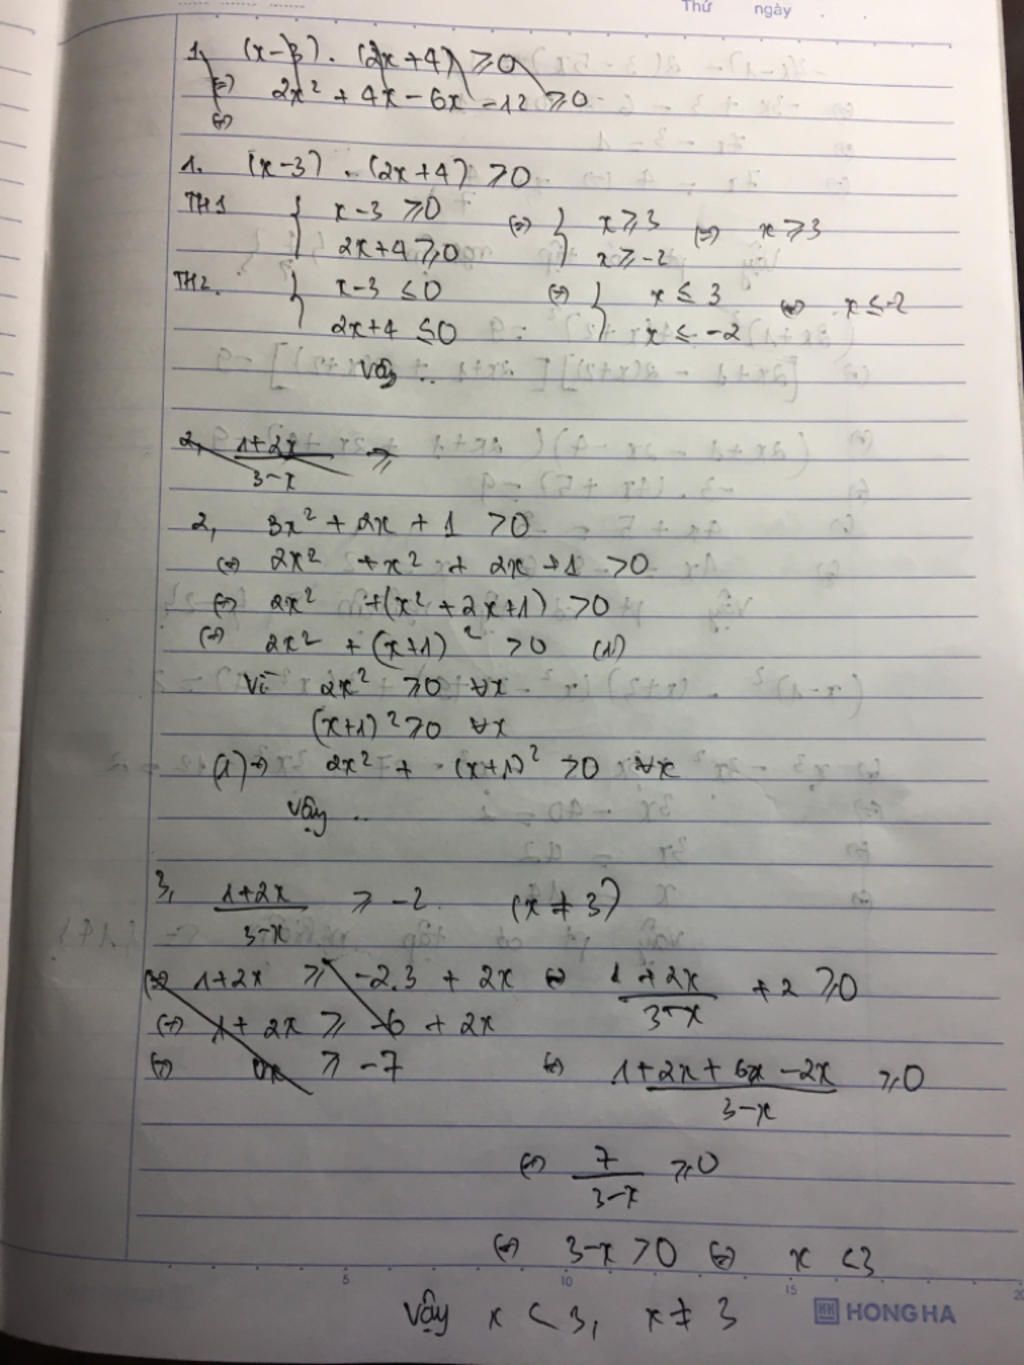 Thứ ngày
1, (x-3). (2x+4) ≥0
(=) 2x² + 4x - 6x -12 ≥0
(=)
1. (x-3) . (2x+4) ≥0
TH1 { x-3 ≥0 (=) { x≥3 (=) x≥3
2x+4≥0 x≥-2
TH2. { x-3 ≤0 (=) { x ≤ 3 (=) x≤-2
2x+4 ≤0 x ≤ -2
Vậy ..
2, 1+2x / 3-x ≥
2, 3x² + 2x + 1 >0
(=) 2x² + x² + 2x +1 >0
(=) 2x² +(x² + 2x+1) >0
(=) 2x² + (x+1)² >0 (1)
Vì 2x² ≥0 ∀x
(x+1)² ≥0 ∀x
(1) => 2x² + (x+1)² >0 ∀x
Vậy ..
3, 1+2x / 3-x ≥ -2 (x ≠ 3)
(=) 1+2x ≥ -2.3 + 2x (=) 1+2x / 3-x + 2 ≥0
(=) 1+ 2x ≥ -6 + 2x
(=) 0x ≥ -7 (=) 1+2x+6-2x / 3-x ≥0
(=) 7 / 3-x ≥0
(=) 3-x >0 (=) x <3
Vậy x < 3, x ≠ 3
5 10 15 20
HONG HA